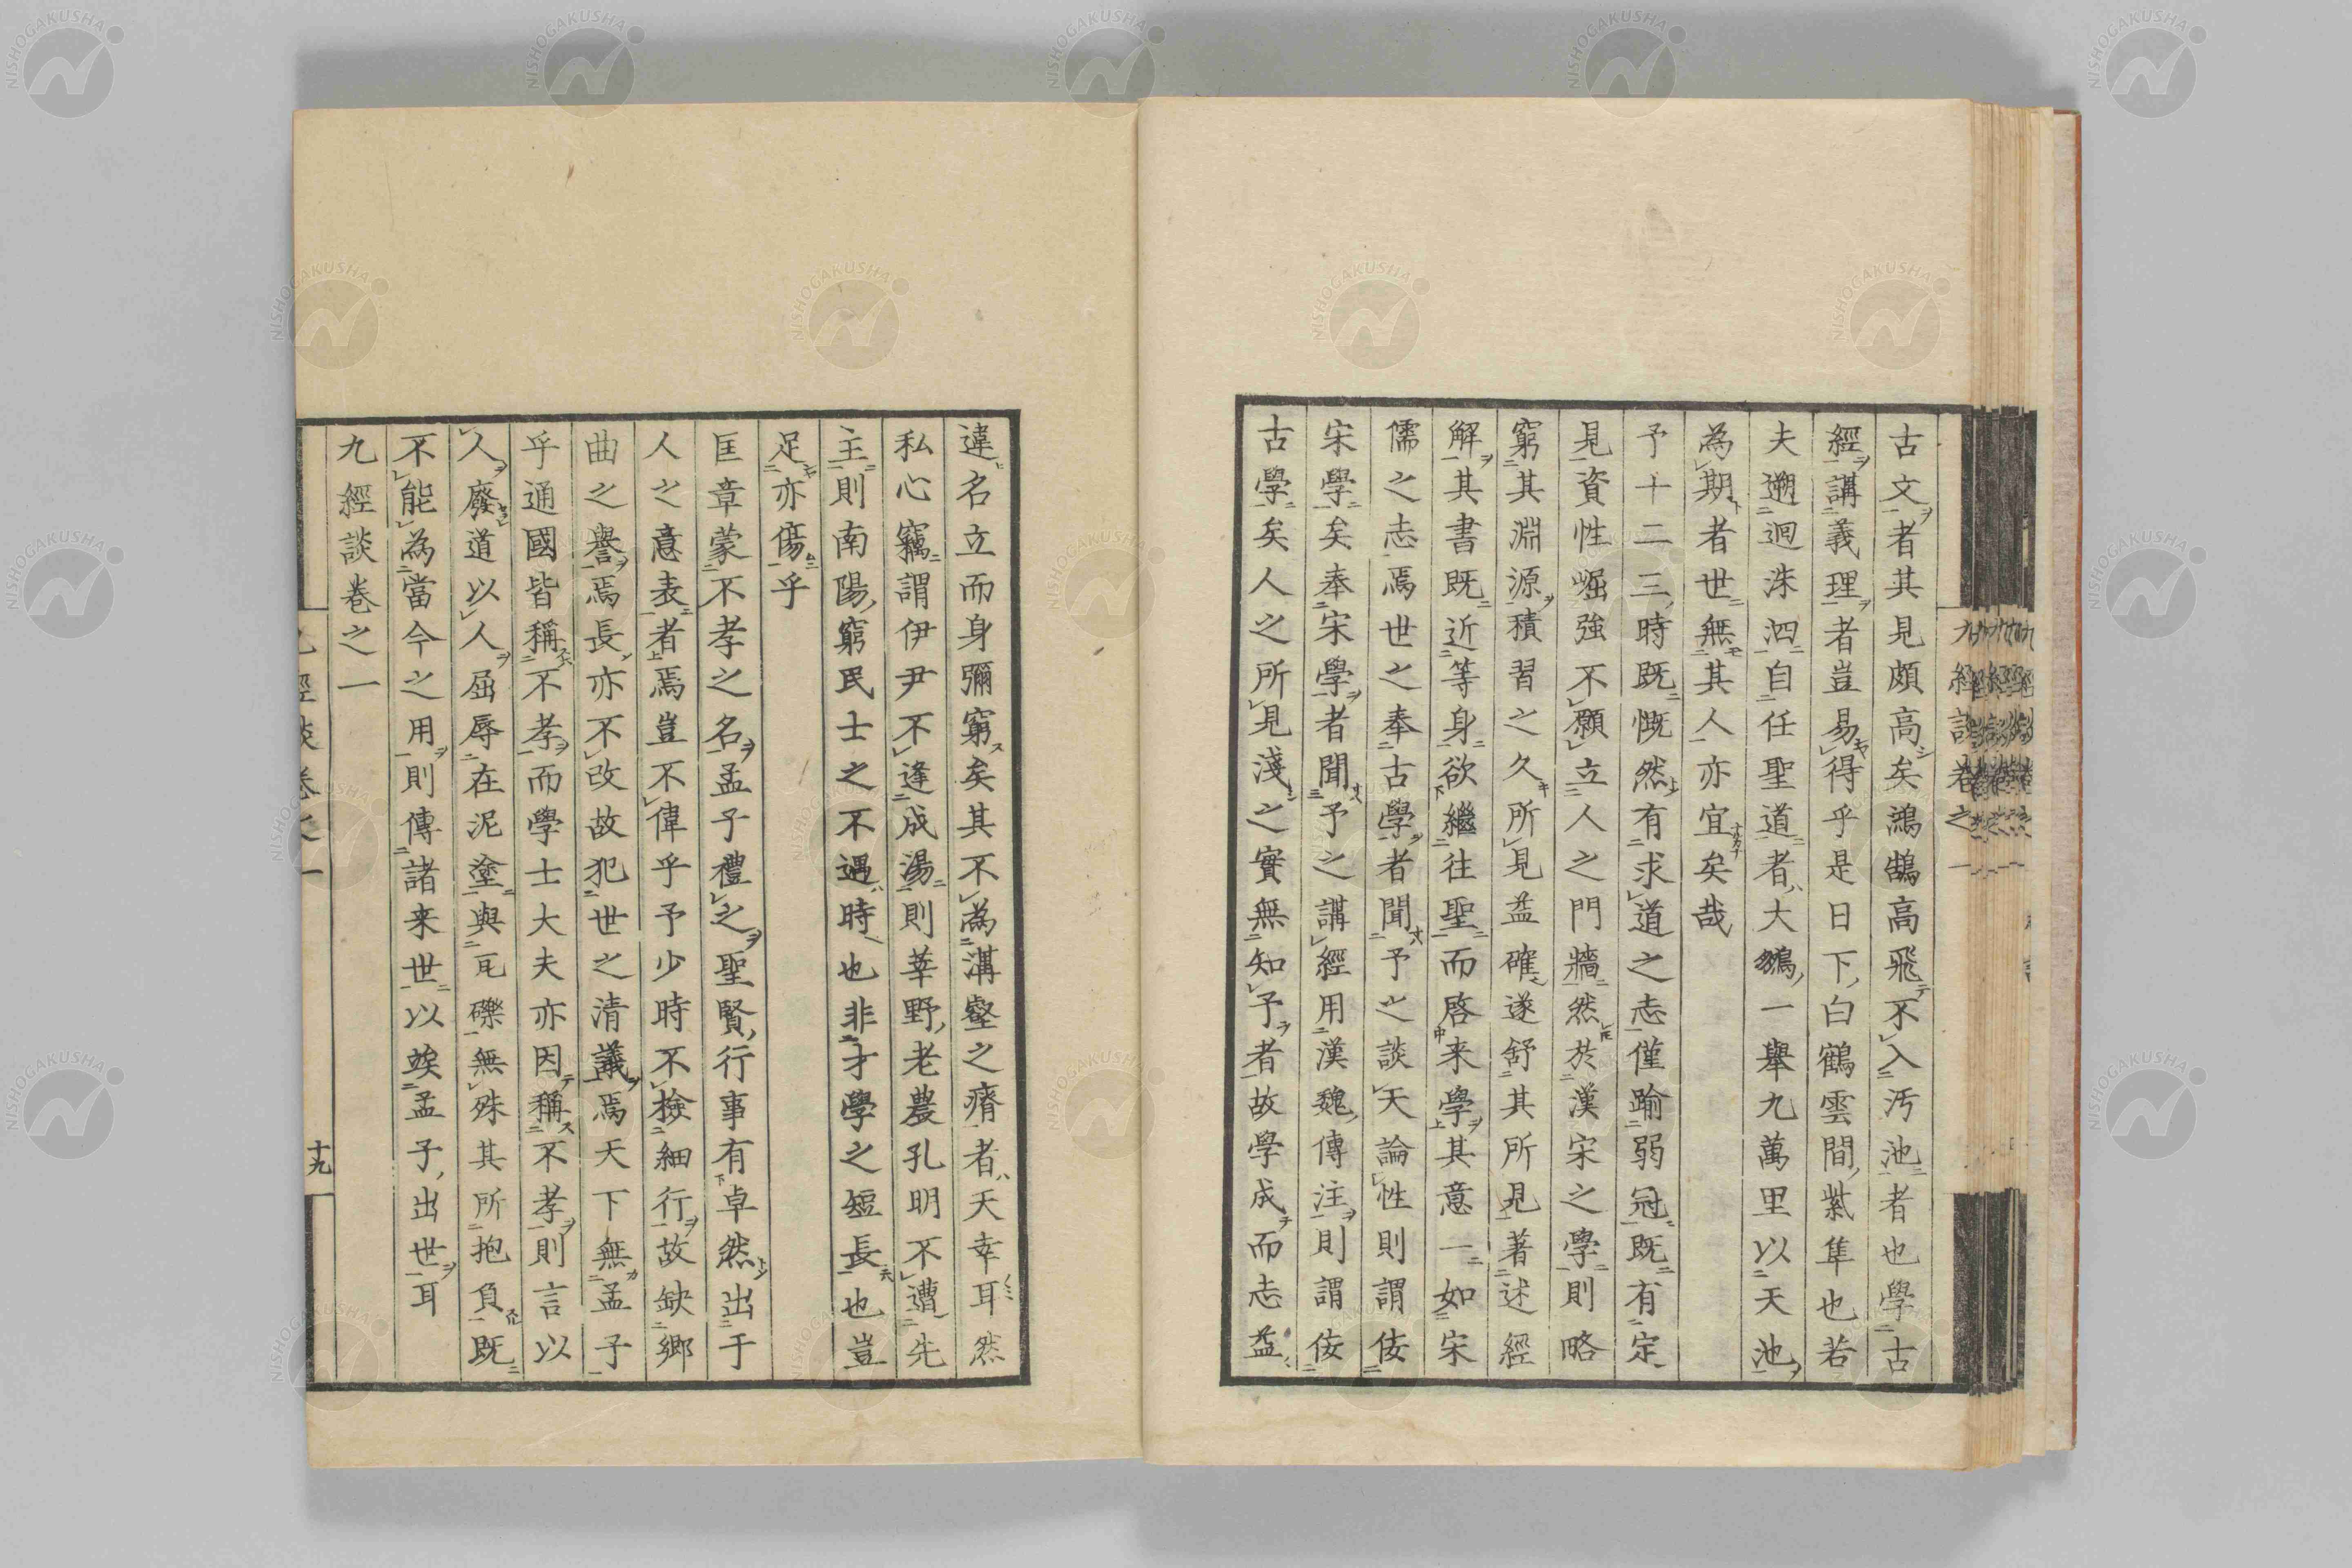 古文者其見頗高矣鴻鵠高飛不入汚池者也學古
經講義理者豈易得乎是日下白鶴雲間紫隼也若
夫遡洄洙泗自任聖道者大鵬一擧九萬里以天池
為期者世無其人亦宜矣哉
予十二三時既慨然有求道之志僅踰弱冠既有定
見資性崛強不願立人之門牆然於漢宋之學則略
窮其淵源積習之久所見益確遂舒其所見著述經
解其書既近等身欲繼往聖而啓来學其意一如宋
儒之志焉世之奉古學者聞予之談天論性則謂佞
宋學矣奉宋學者聞予之講經用漢魏傳注則謂佞
古學矣人之所見淺之實無知予者故學成而志益
違名立而身彌窮矣其不為溝壑之瘠者天幸耳然
私心竊謂伊尹不逢成湯則莘野老農孔明不遭先
主則南陽窮民士之不遇時也非才學之短長也豈
足亦傷乎
匡章蒙不孝之名孟子禮之聖賢行事有卓然出于
人之意表者焉豈不偉乎予少時不檢細行故缺鄉
曲之譽焉長亦不改故犯世之清議焉天下無孟子
乎通國皆稱不孝而學士大夫亦因稱不孝則言以
人廢道以人屈辱在泥塗與瓦礫無殊其所抱負既
不能為當今之用則傳諸来世以竢孟子出世耳
九經談卷之一
九經談卷之一
十九